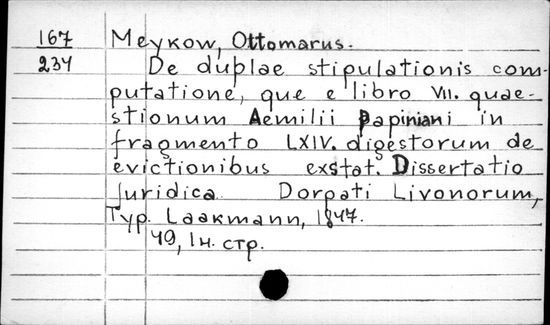 167 Meykow, Ottomarus.
234 De duplae stipulationis com-
putatione, que e libro VII. quae-
stionum Aemilii Papiniani in
fragmento LXIV. digestorum de
evictionibus exstat. Dissertatio
Juridica Dorpati Livonorum,
Typ. Laakmann, 1847.
49, 1н. стр.